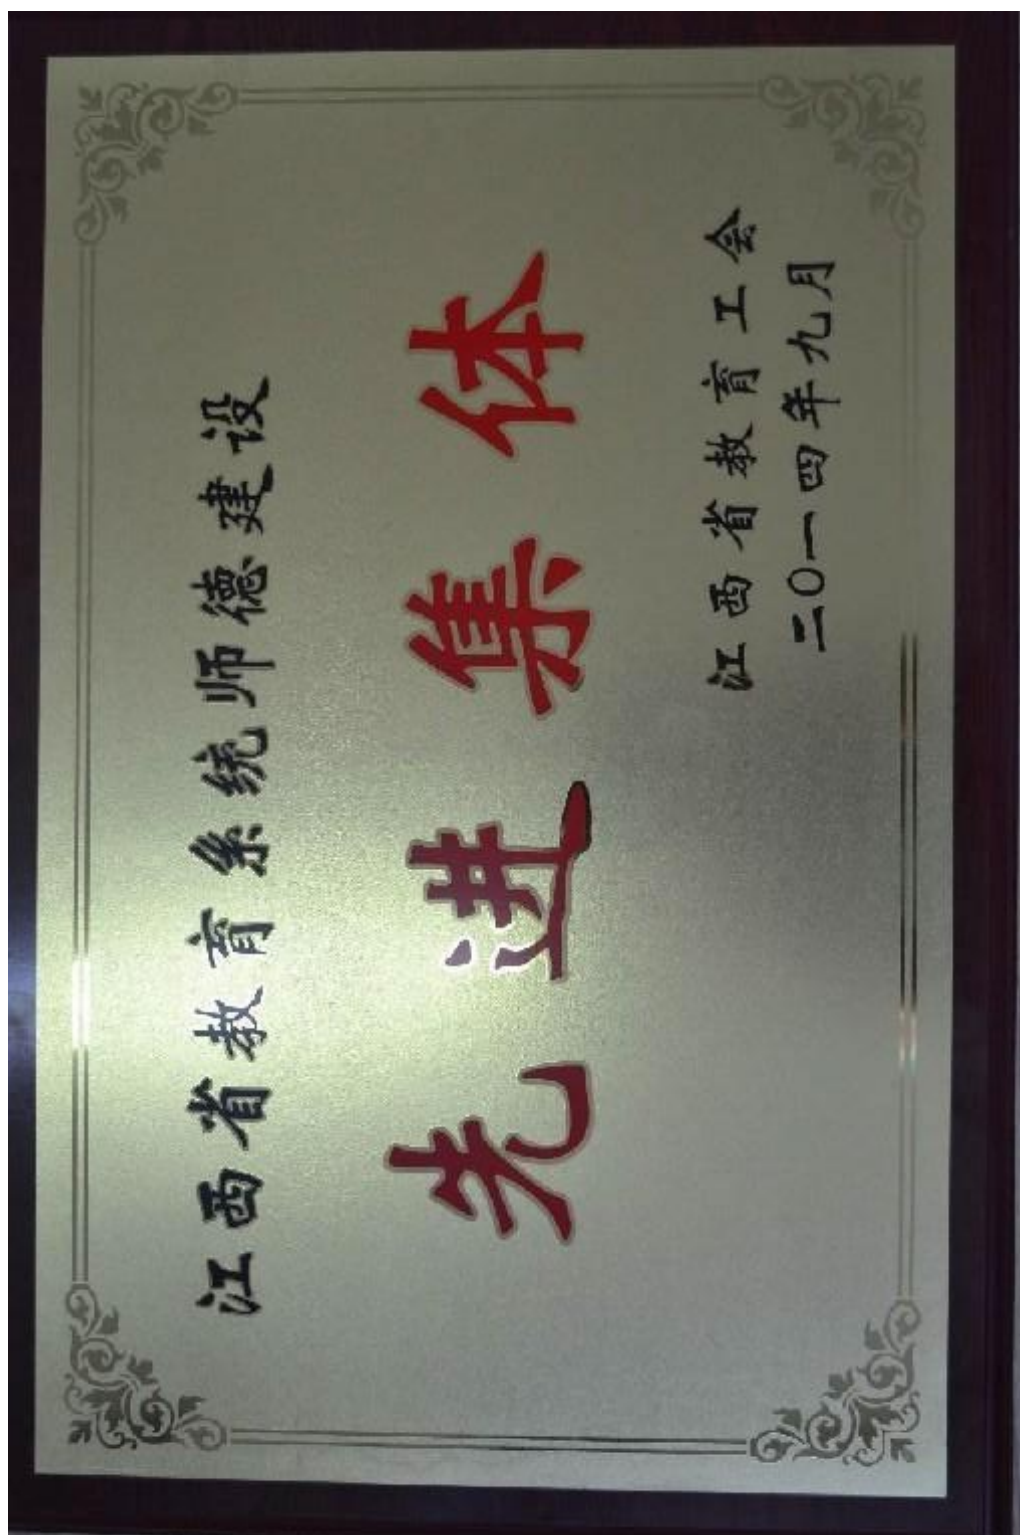 江西省教育系统师德建设
先进集体
江西省教育工会
二〇一四年九月